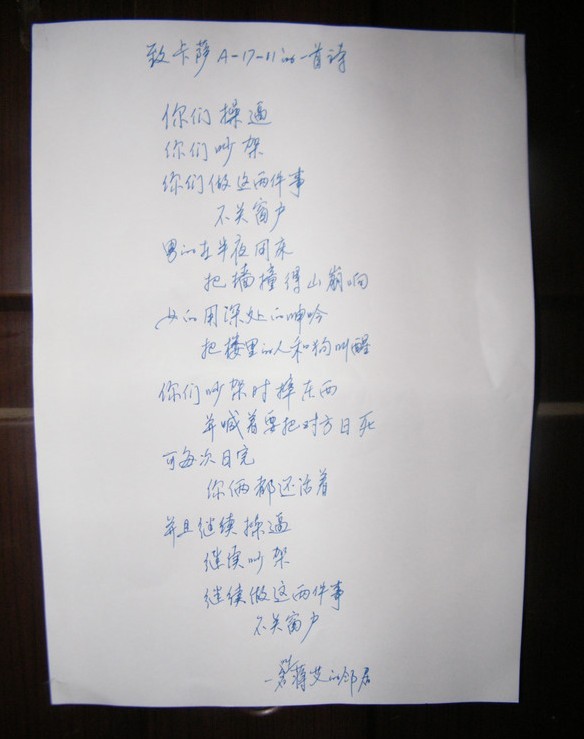 致卡萨A-17-11的一首诗
你们操逼
你们吵架
你们做这两件事
不关窗户
男的在半夜回来
把墙撞得山崩响
女的用深处的呻吟
把楼里的人和狗叫醒
你们吵架时摔东西
并喊着要把对方日死
可每次日完
你俩都还活着
并且继续操逼
继续吵架
继续做这两件事
不关窗户
艾的邻居